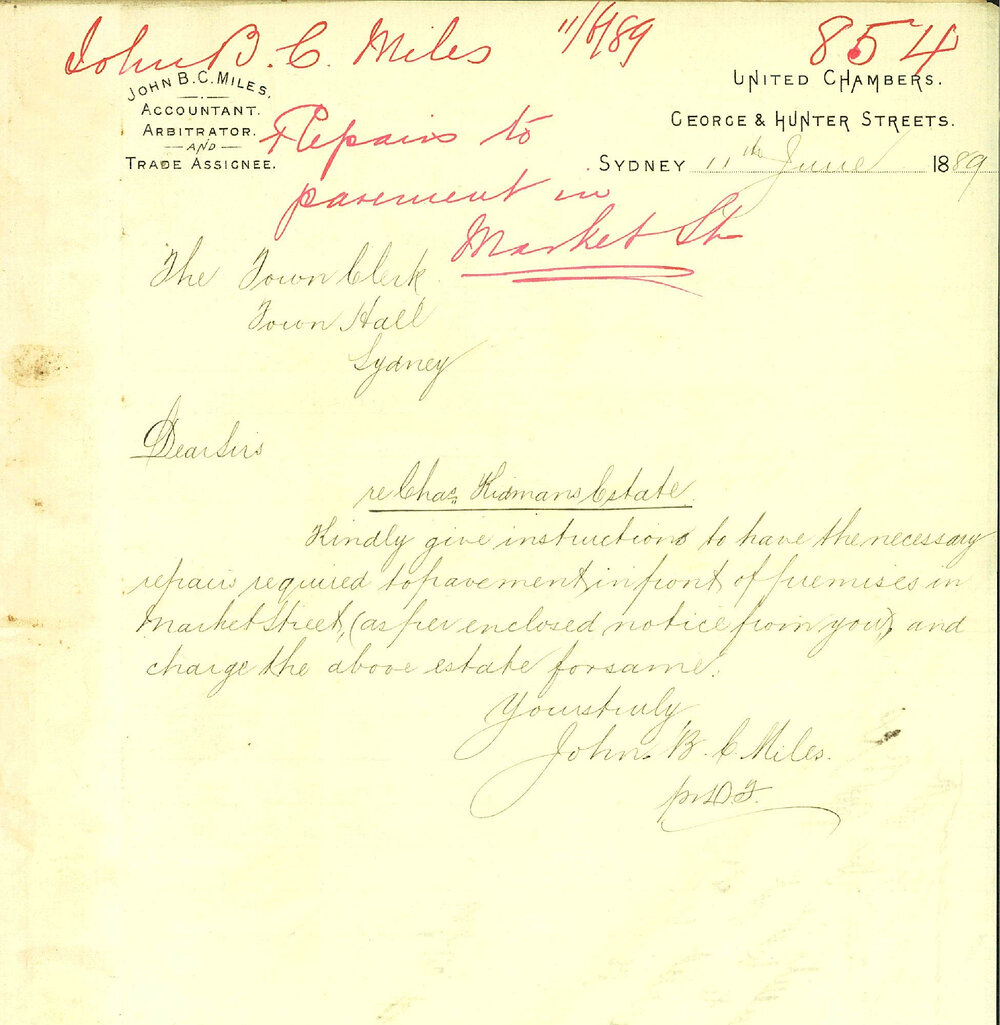 John B. C. Miles 11/6/89 854
JOHN B. C. MILES,
ACCOUNTANT.
ARBITRATOR.
AND
TRADE ASSIGNEE.
UNITED CHAMBERS.
GEORGE & HUNTER STREETS.
SYDNEY 11th June 1889
Repairs to
pavement in
Market St
The Town Clerk
Town Hall
Sydney
Dear Sirs
re Chas. Kidmans Estate.
Kindly give instructions to have the necessary
repairs required to pavement, in front of premises in
Market Street, (as per enclosed notice from you), and
charge the above estate for same.
Yours truly
John. B. C Miles.